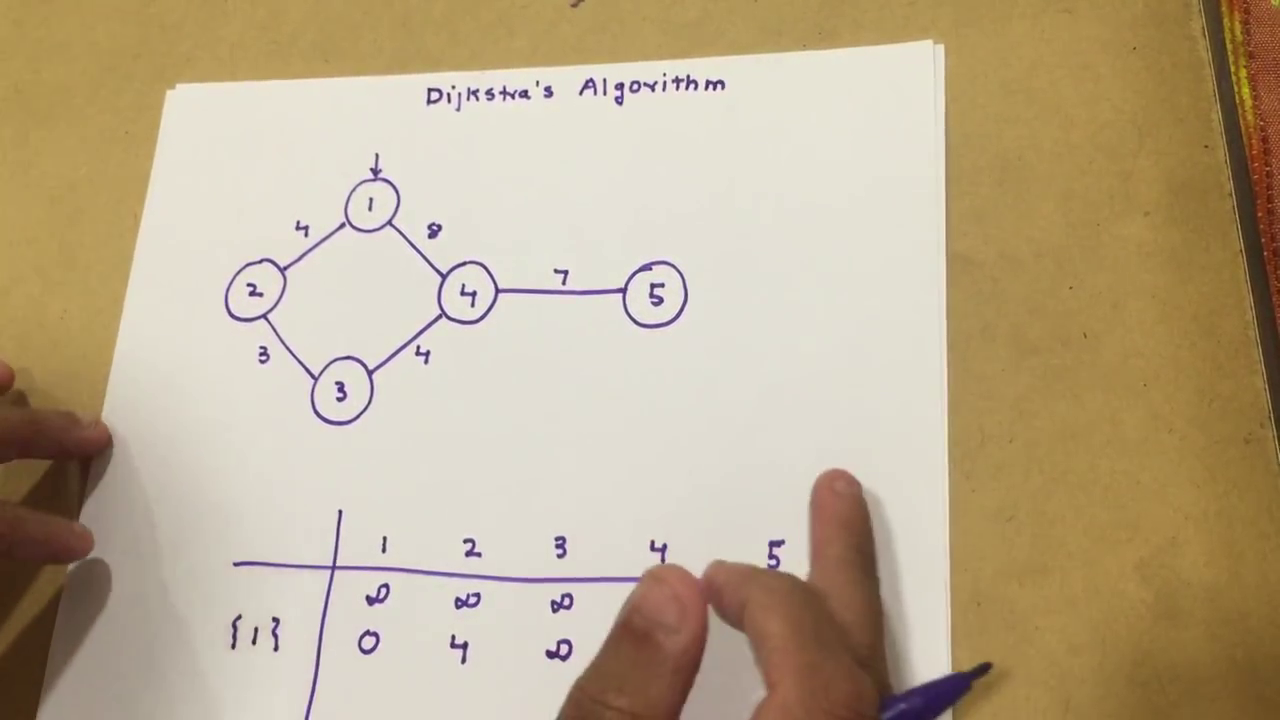 Dijkstra's Algorithm
1
4 8
2 4 7 5
3 4
3
1 2 3 4 5
∞ ∞ ∞
{1} 0 4 ∞